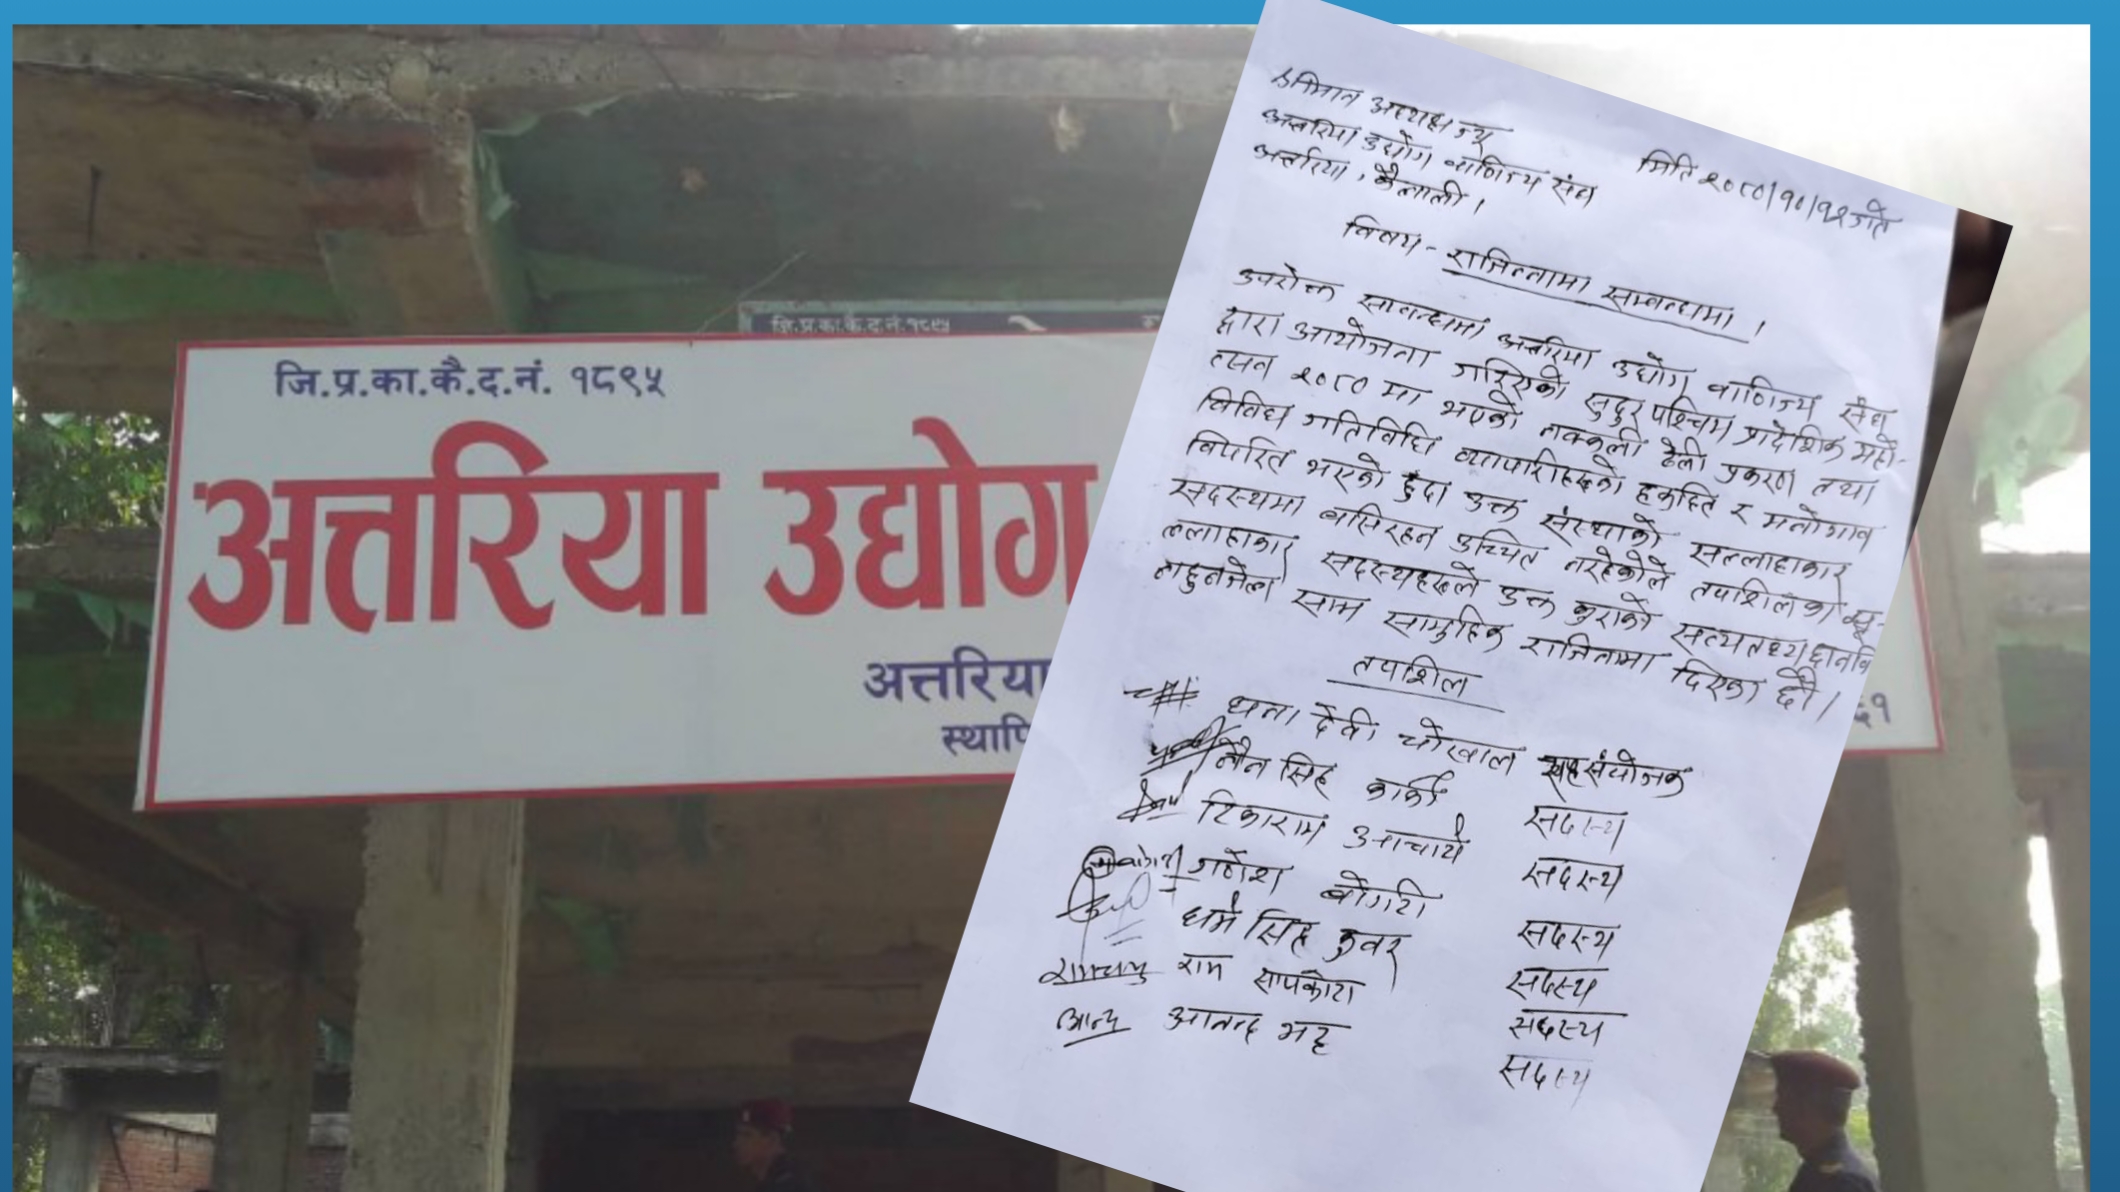 जि.प्र.का.कै.द.नं.१८९५
जि.प्र.का.कै.द.नं. १८९५
अत्तरिया उद्योग
अत्तरिया
स्थापि
६१
श्रीमान अध्यक्ष ज्यू
अत्तरिया उद्योग वाणिज्य संघ
अत्तरिया, कैलाली।
मिति २०८०/१०/१२ गते
विषय- राजिनामा सम्बन्धमा।
उपरोक्त सम्बन्धमा अत्तरिया उद्योग वाणिज्य संघ
द्वारा आयोजना गरिएको सुदुरपश्चिम प्रादेशिक महो-
त्सव २०८० मा भएको नक्कली ढेली प्रकरण तथा
विविध गतिविधि व्यापारीहरुको हकहित र मनोभाव
विपरित भएको हुँदा उक्त संस्थाको सल्लाहाकार
सदस्यमा बसिरहन उच्चित नरहेकोले तपशिलका
सल्लाहाकार सदस्यहरुले उक्त कुराको सत्यतथ्य छानवि
सामुहिक राजिनामा दिएका छौं।
तपशिल
धना देवी चोखाल सहसंयोजक
सिंह कार्की सदस्य
टिकाराम आचार्य सदस्य
गणेश बोगटी सदस्य
धर्म सिंह कुवर सदस्य
राम सापकोटा सदस्य
आनन्द भट्ट सदस्य